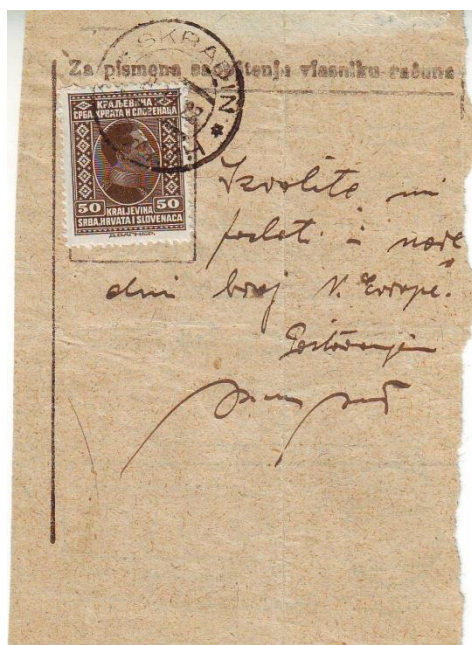 SKRADIN *
Za pismena saopštenja vlasniku računa
КРАЉЕВИНА
СРБА, ХРВАТА И СЛОВЕНАЦА
50 50
KRALJEVINA
SRBA, HRVATA I SLOVENACA
Izvolite mi
poslati i nare
dni broj N. Evrope.
Poštovanjem